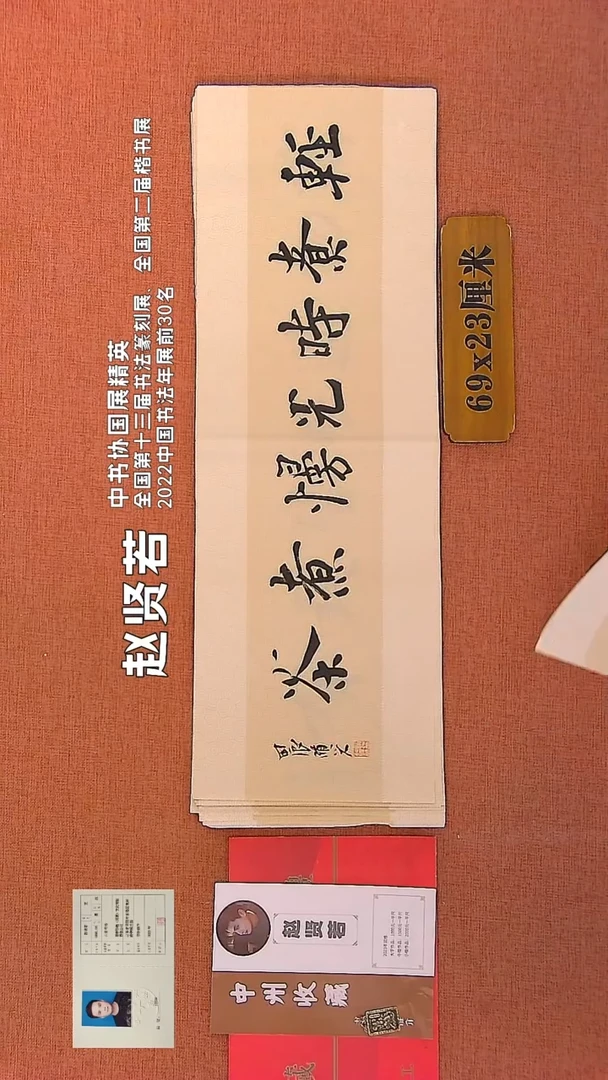 中书协国展精英
全国第十三届书法篆刻展、全国第二届楷书展
2022中国书法年展前30名
赵贤若
輕煮時光慢煮茶
69x23厘米
赵贤若
中州收藏